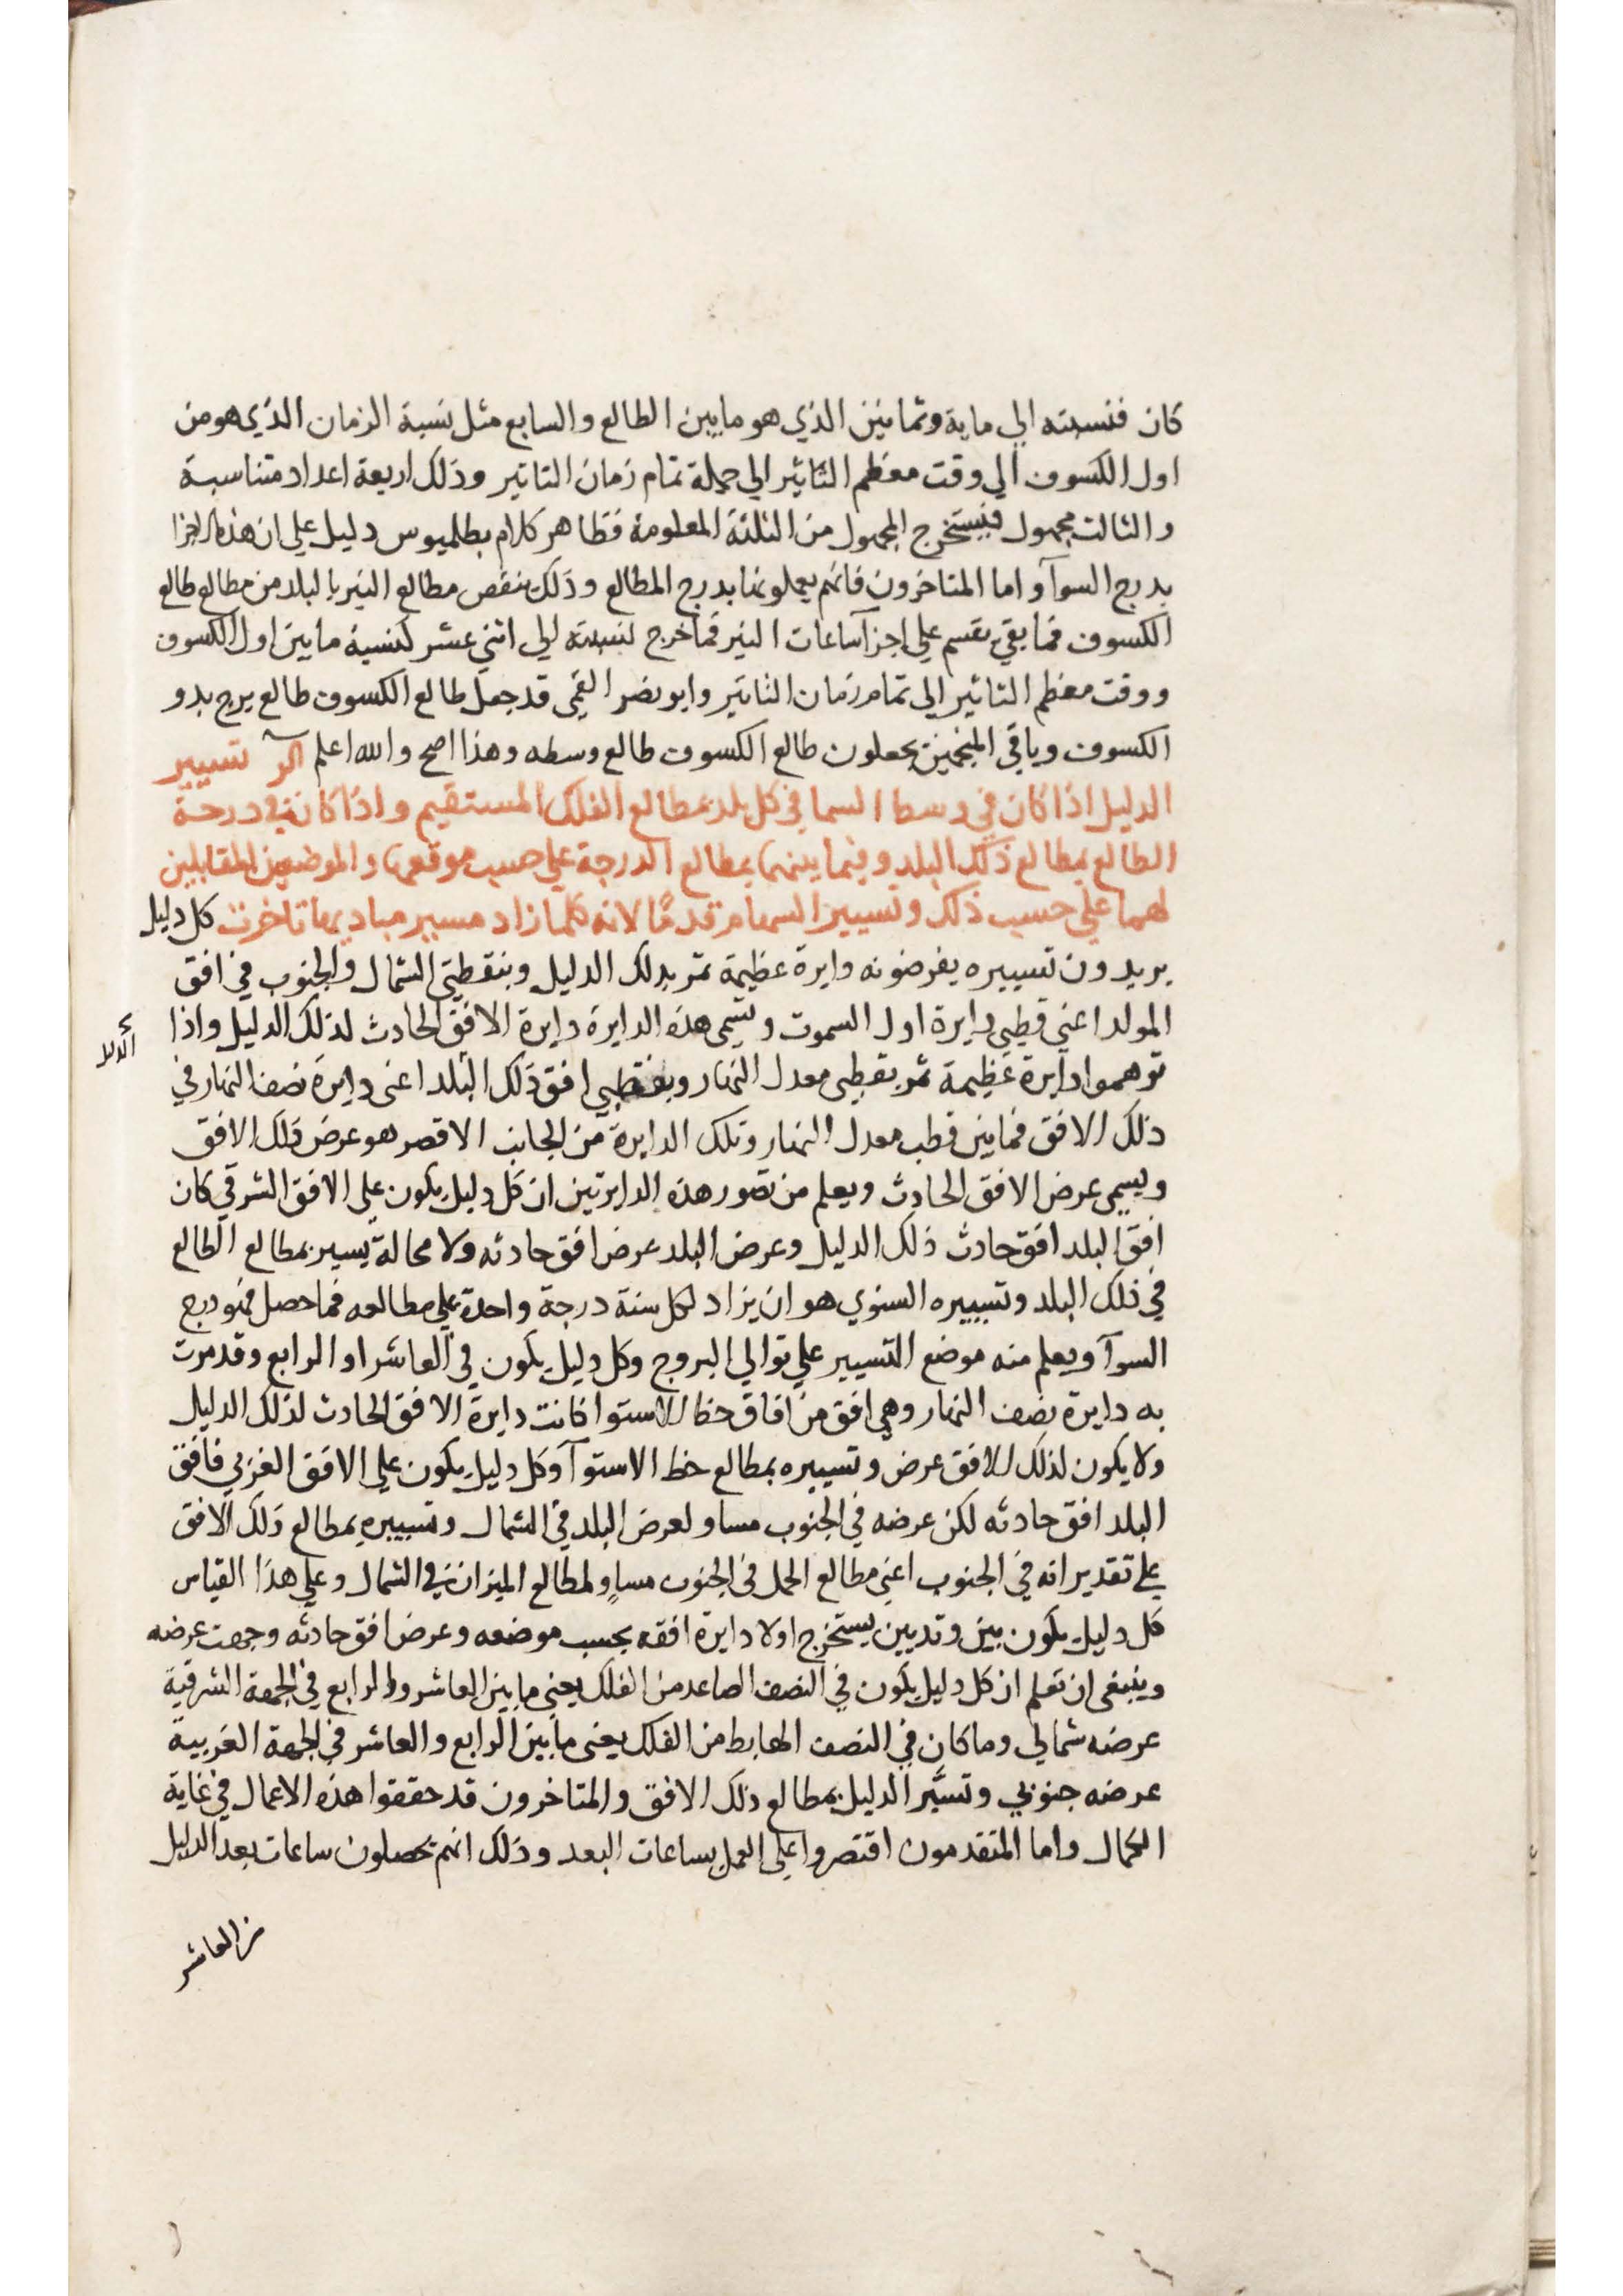 كان فنسبته الي ماية وثمانين الذي هو ما بين الطالع والسابع مثل نسبة الزمان الذي هو من
اول الكسوف الي وقت معظم التاثير الي جملة تمام زمان التاثير وذلك اربعة اعداد متناسبة
والثالث مجهول فيستخرج المجهول من الثلثة المعلومة فظاهر كلام بطلميوس دليل علي ان هذه الاجزا
بدرج السوآ واما المتاخرون فانهم يعملونها بدرج المطالع وذلك بنقص مطالع النير بالبلد من مطالع طالع
الكسوف فما بقي يقسم علي اجزآ ساعات النير فما خرج نسبته الي اثني عشر كنسبة ما بين اول الكسوف
ووقت معظم التاثير الي تمام زمان التاثير وابو نصر القمي قد جعل طالع الكسوف طالع برج بدو
الكسوف وباقي المنجمين يجعلون طالع الكسوف طالع وسطه وهذا اصح والله اعلم تسيير
الدليل اذا كان في وسط السما في كل بلد بمطالع الفلك المستقيم واذا كان في درجة
الطالع بمطالع ذلك البلد وفيما بينهما بمطالع الدرجة علي حسب موقعها والموضعين المقابلين
لهما علي حسب ذلك وتسيير السهام قدمًا لانه كلما زاد مسير مباديها تاخرت كل دليل
يريدون تسييره يفرضونه دايرة عظيمة تمر بذلك الدليل وبنقطتي الشمال والجنوب في افق
المولد اعني قطبي دايرة اول السموت وتسمي هذه الدايرة دايرة الافق الحادث لذلك الدليل واذا
توهموا دايرة عظيمة تمر بقطبي معدل النهار وبقطبي افق ذلك البلد اعني دايرة نصف النهار في
ذلك الافق فما بين قطب معدل النهار وتلك الدايرة من الجانب الاقصر هو عرض ذلك الافق
ويسمي عرض الافق الحادث ويعلم من تصور هذه الدايرتين ان كل دليل يكون علي الافق الشرقي كان
افق البلد افق حادث ذلك الدليل وعرض البلد عرض افق حادثه ولا محالة يسير بمطالع الطالع
في ذلك البلد وتسييره السنوي هو ان يزاد لكل سنة درجة واحدة علي مطالعه فما حصل فهو درج
السوآ ويعلم منه موضع التسيير علي توالي البروج وكل دليل يكون في العاشر او الرابع وقد مرت
به دايرة نصف النهار وهي افق من افاق خط الاستوا كانت دايرة الافق الحادث لذلك الدليل
ولا يكون لذلك الافق عرض وتسييره بمطالع خط الاستوآ وكل دليل يكون علي الافق الغربي فافق
البلد افق حادثه لكن عرضه في الجنوب مساو لعرض البلد في الشمال وتسييره بمطالع ذلك الافق
علي تقدير انه في الجنوب اعني مطالع الحمل في الجنوب مساوٍ لمطالع الميزان في الشمال وعلي هذا القياس
كل دليل يكون بين وتدين يستخرج اولا دايرة افقه بحسب موضعه وعرض افق حادثه وجهت عرضه
وينبغي ان تعلم ان كل دليل يكون في النصف الصاعد من الفلك يعني ما بين العاشر والرابع في الجهة الشرقية
عرضه شمالي وما كان في النصف الهابط من الفلك يعني ما بين الرابع والعاشر في الجهة الغربية
عرضه جنوبي وتسيَّر الدليل بمطالع ذلك الافق والمتاخرون قد حققوا هذه الاعمال في غاية
الكمال واما المتقدمون اقتصروا علي العمل بساعات البعد وذلك انهم يحصلون ساعات بعد الدليل
من العاشر